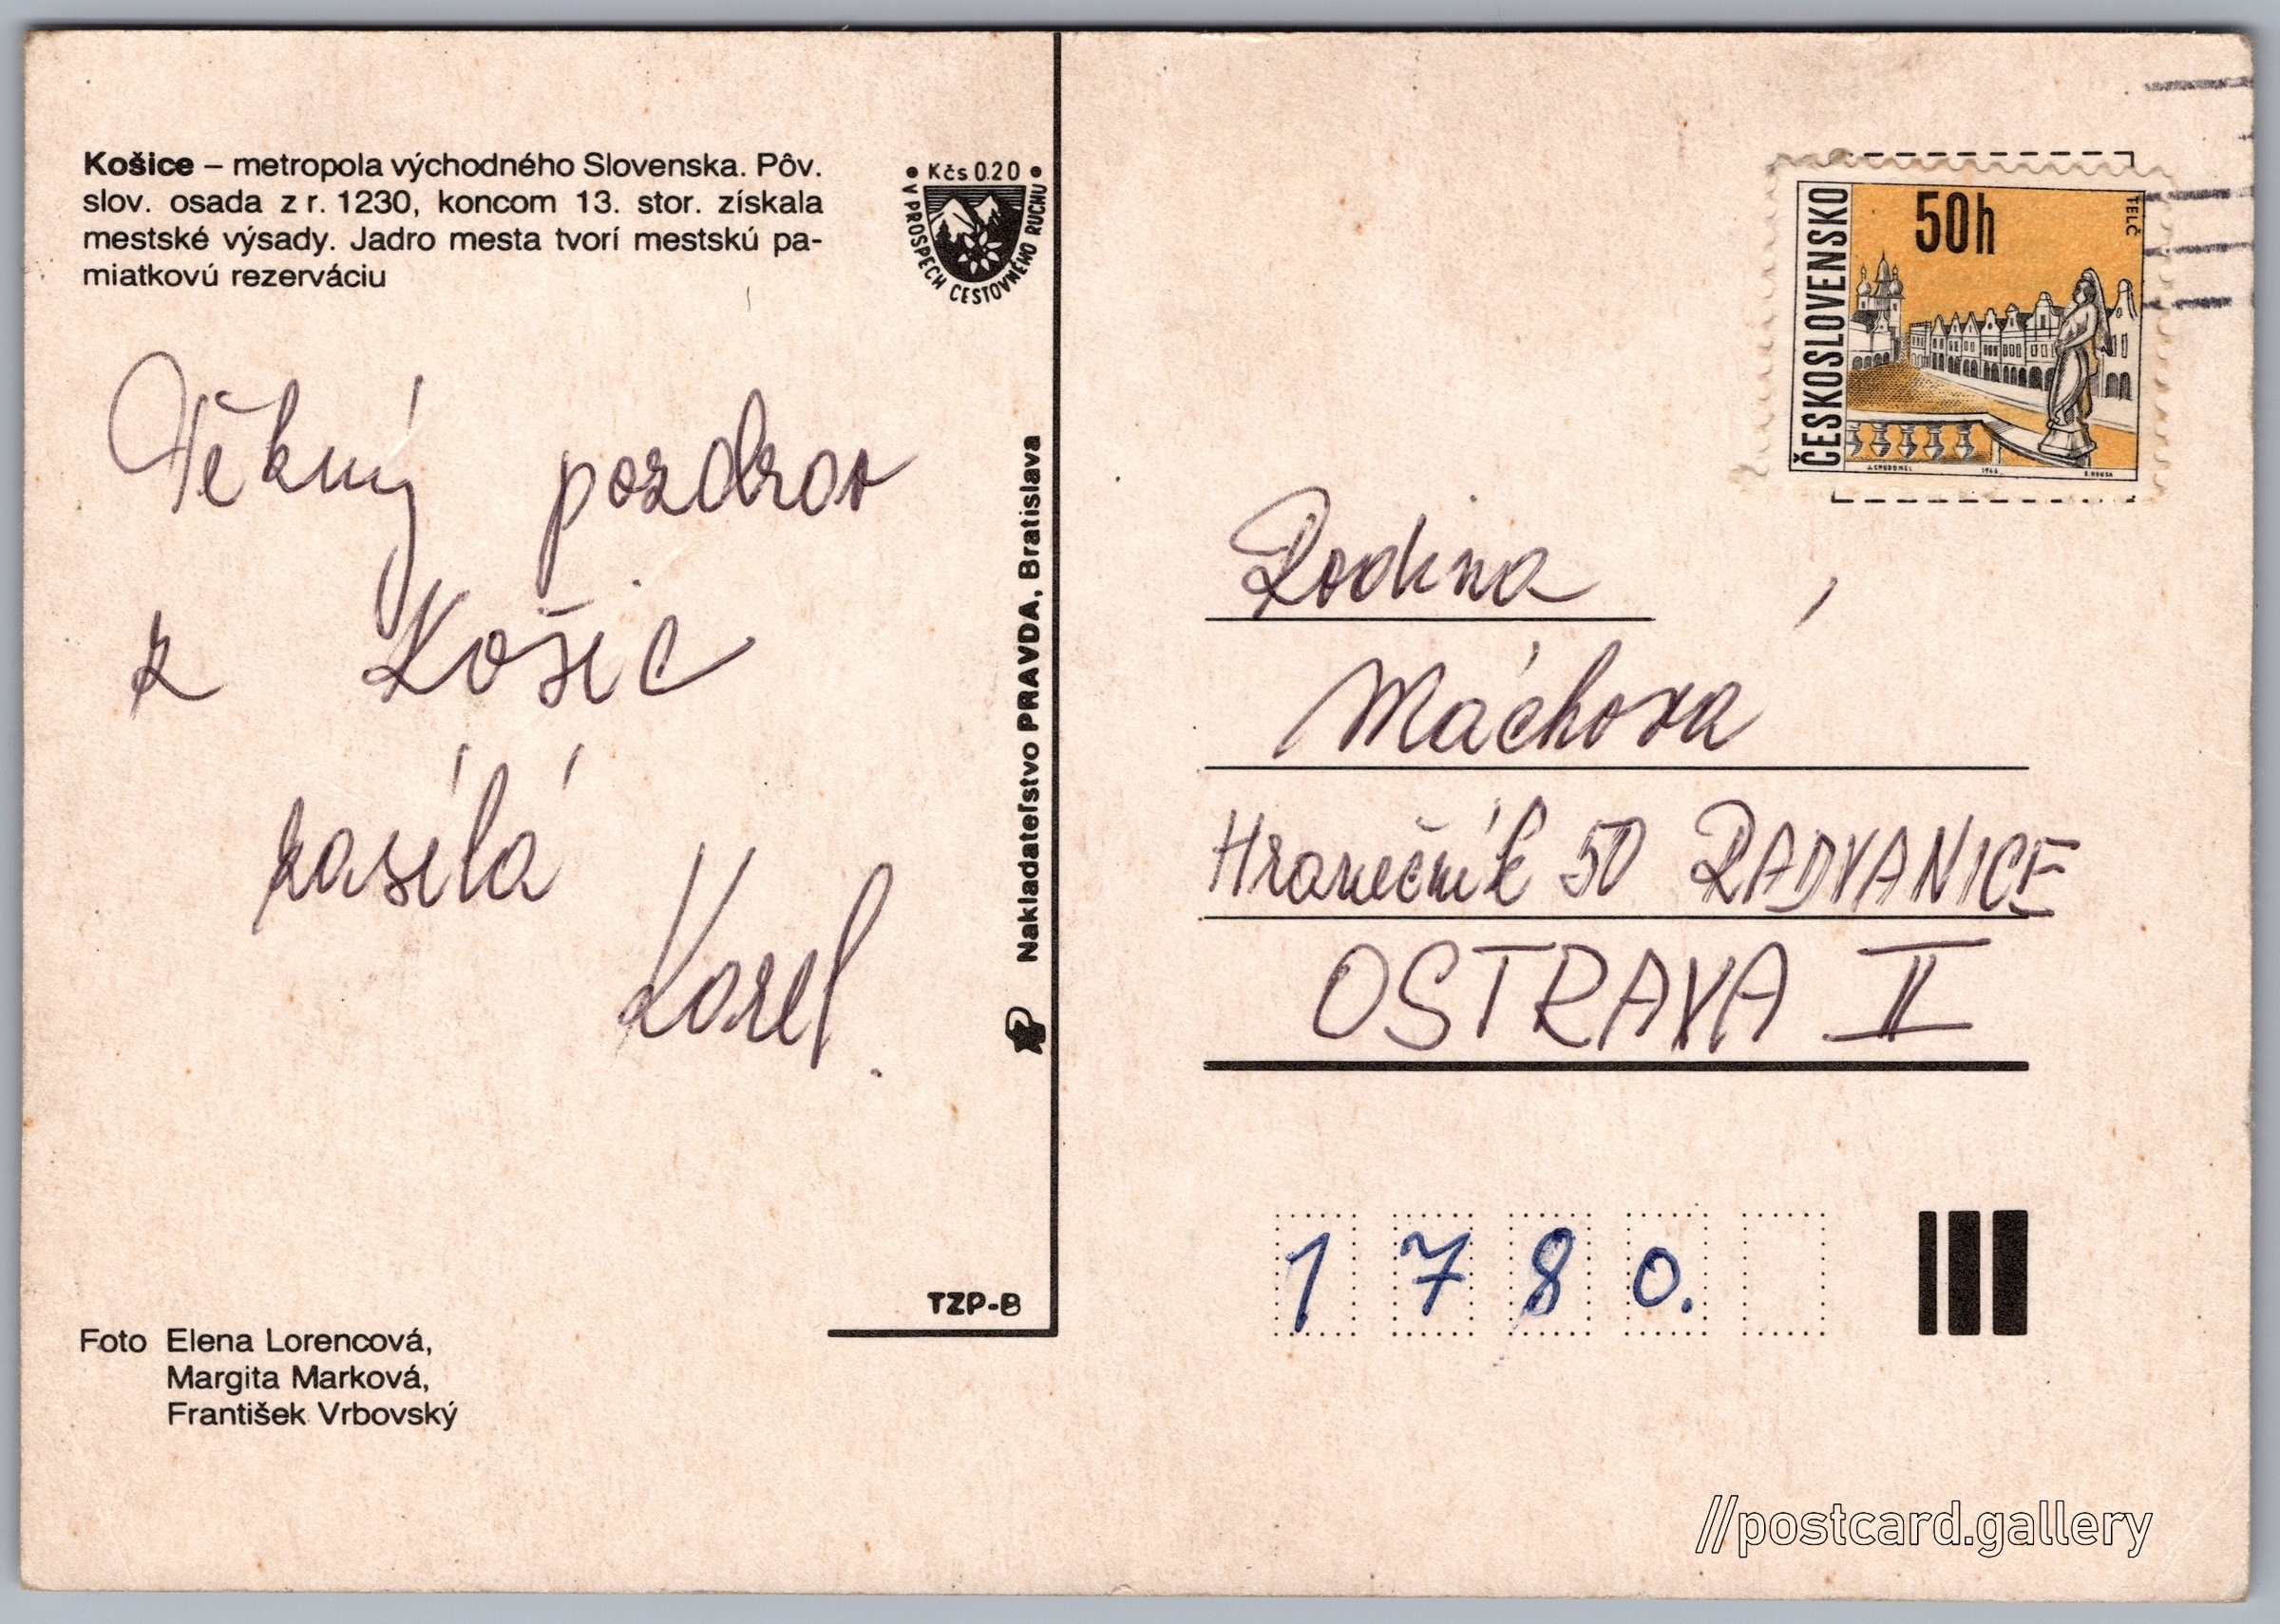 Košice – metropola východného Slovenska. Pôv.
slov. osada z r. 1230, koncom 13. stor. získala
mestské výsady. Jadro mesta tvorí mestskú pa-
miatkovú rezerváciu
• Kčs 0.20 •
V PROSPECH CESTOVNÉHO RUCHU
Pěkný pozdrav
z Košic
zasílá
Karel.
Nakladateľstvo PRAVDA, Bratislava
TZP-B
Foto Elena Lorencová,
Margita Marková,
František Vrbovský
ČESKOSLOVENSKO
50h
TELČ
J. CHUDOMEL 1966 B. HOUSA
Rodina
Máchova
Hranečník 50 RADVANICE
OSTRAVA II
1780.
//postcard.gallery